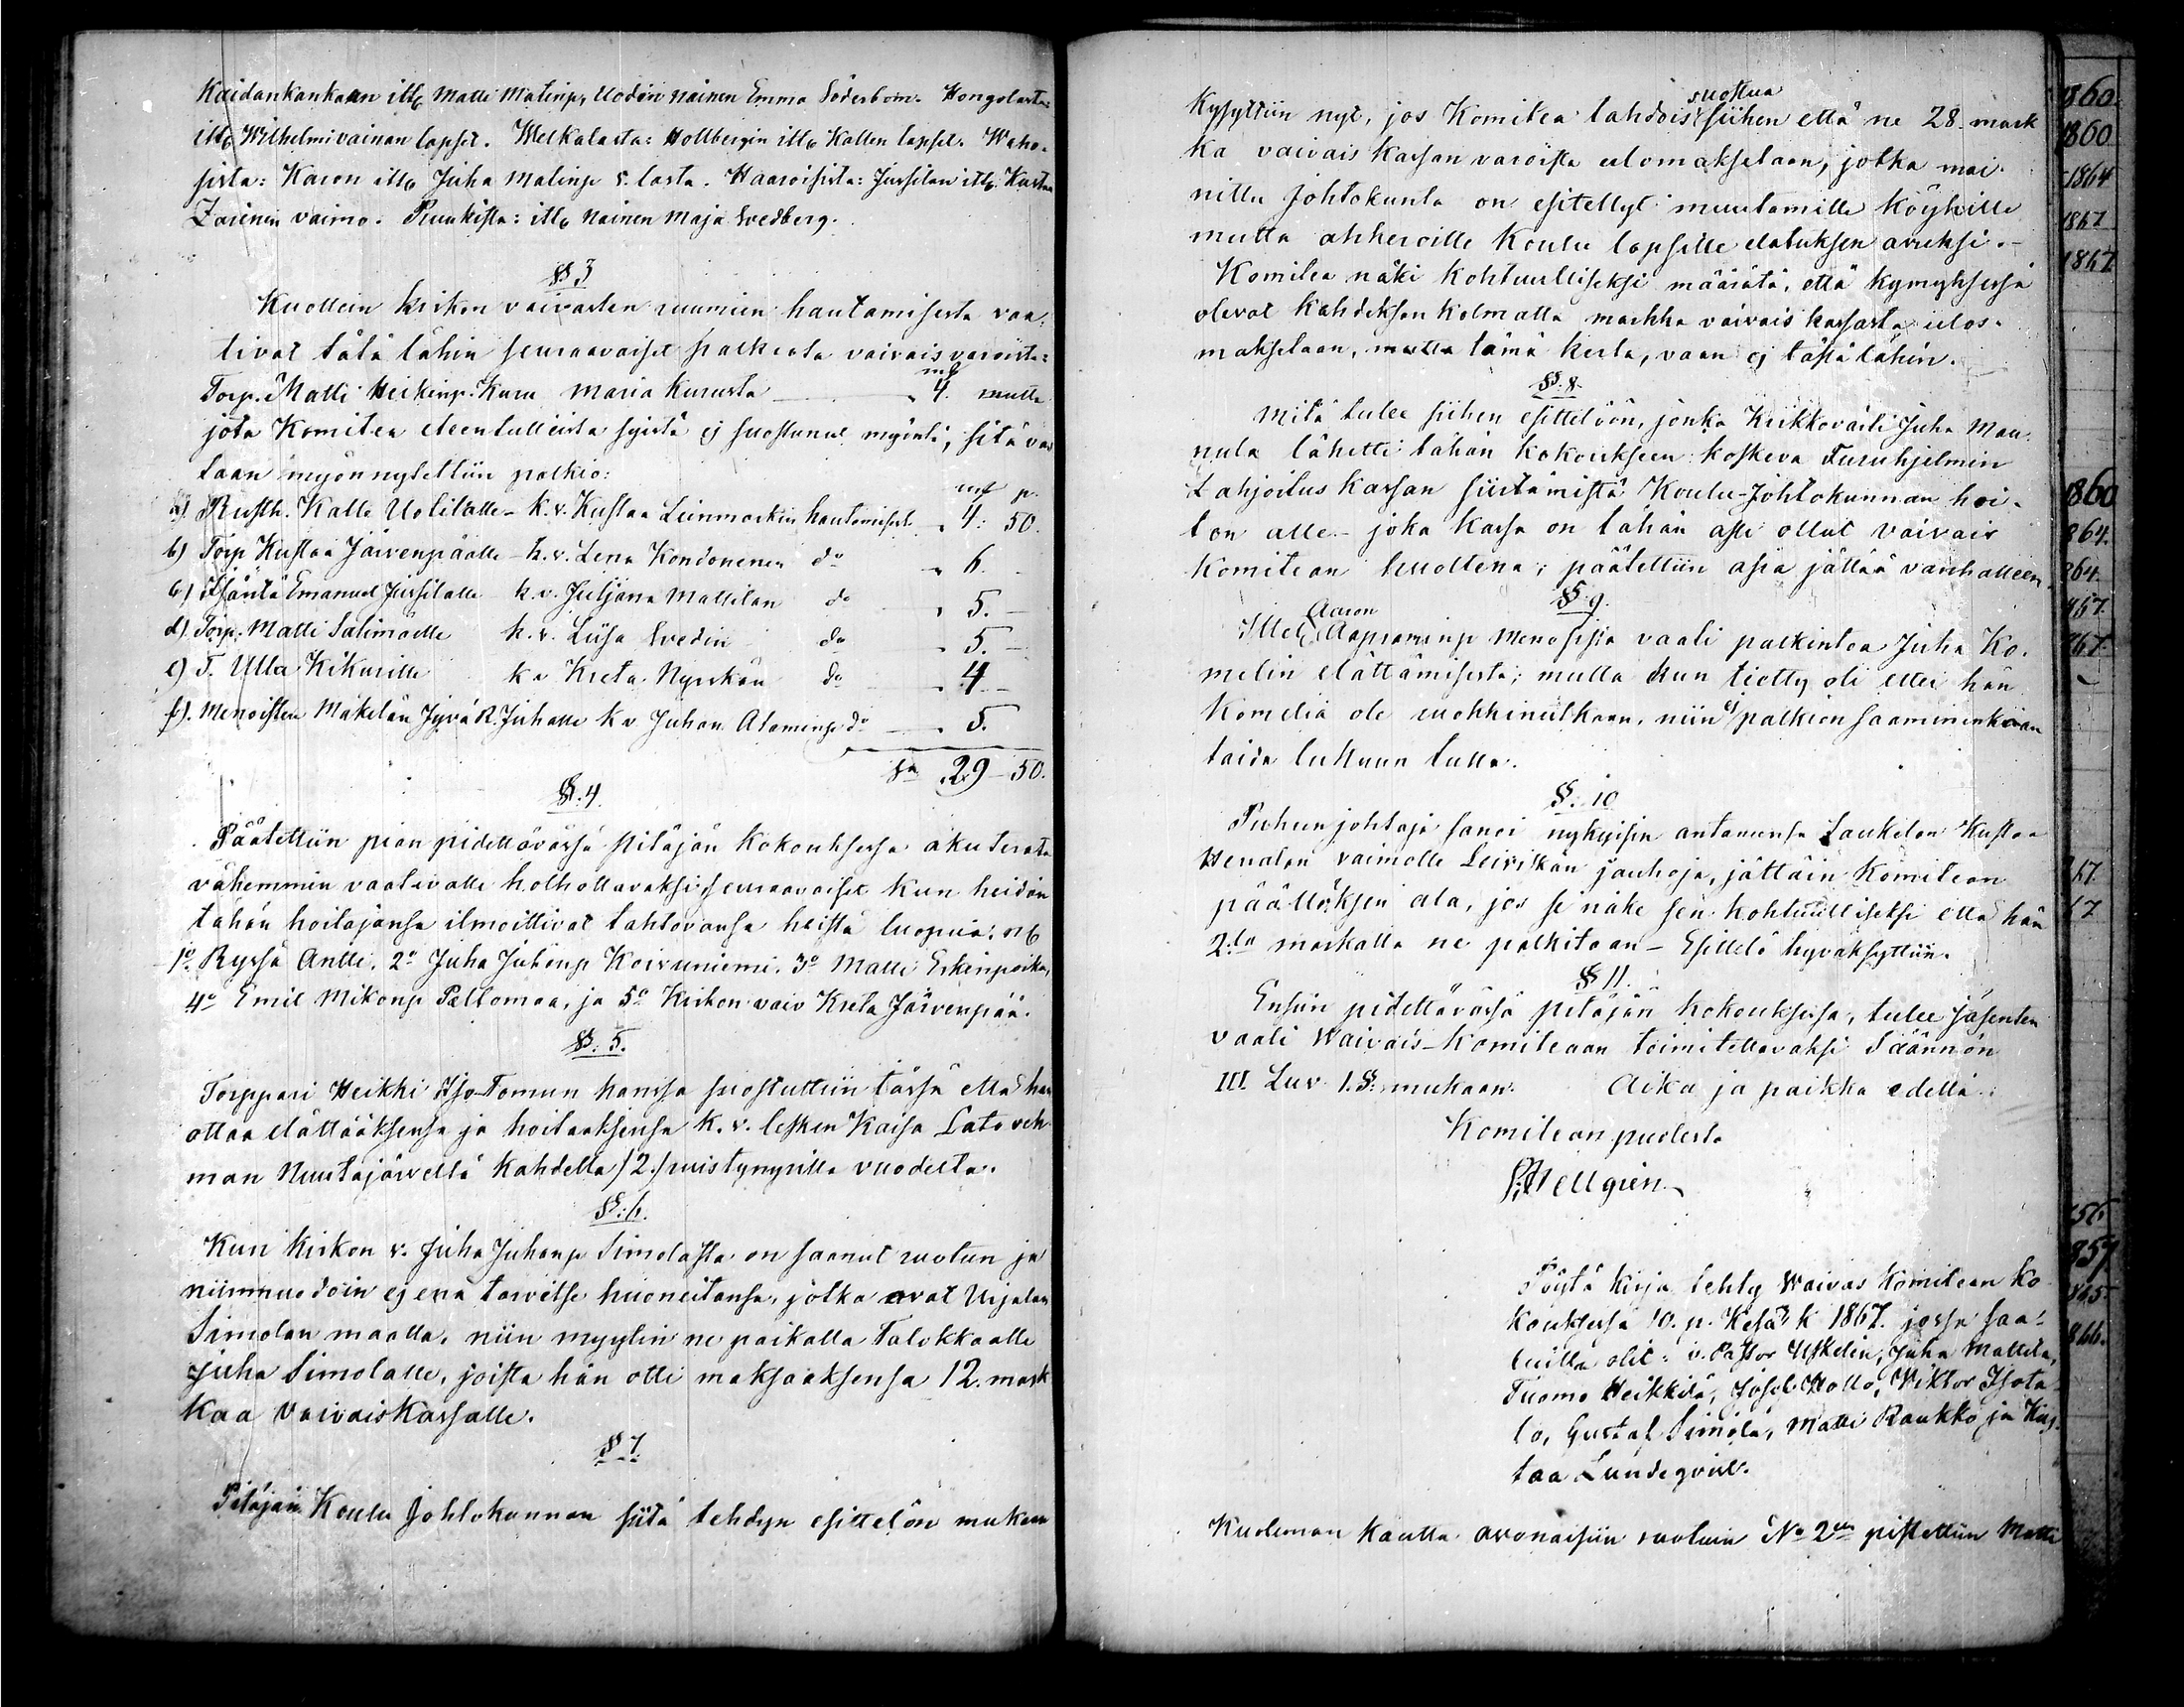 Kaidankankaan itll. Matti Matinp, Uodin nainen Emma Söderbom. Hongolasta:
itll. Wilhelmivainan lapset. Welkalasta: Hollbergin itll. Kallen lapset. Waho-
sista: Karon itll. Juha Matinp 5. lasta. Haaroisista: Jussilan itll. Kustaa
vaimo. Ruukista: itll. nainen Maja Svedberg.
§. 3
Kuollein kirkon vaivasten ruumien hautamisesta vaa-
tivat tätä lähin seuraavaiset palkiota vaivais varoista:
mk
Torp. Matti Heikinp. Kuru Maria Kurusta " 4. mutta
jota Komitea eteentulleista syistä ej suostunut myönti, sitä vas
taan myönnytettiin palkio:
mk p.
a) Rusth. Kalle Uotilalle - k. v. Kustaa Leinmarkin hautamisest. " 4: 50.
b) Torp Kustaa Järvenpäälle - k. v. Lena Kondonenen do " 6. -
c) Isäntä Emanuel Jussilalle k. v. Juljana Mattilan do " 5. -
d) Torp. Matti Salimäelle k. v. Liisa Svedin do " 5. -
e) T. Ulla Kikurille k v Kreta Nyrskän do " 4 -
f). Menoisten Mäkelän Jyvä R. Juhalle k v Juhan Ataminp do " 5.
Sa 29 - 50.
§. 4.
Päätettiin pian pidettävässä pitäjän kokouksessa akuterata
vähemmin vaativalle holhottavaksi seuraavaiset kun heidän
tähän hoitajansa ilmoittivat tahtovansa heistä luopua: nb
1o. Ryssä Antti. 2o Juha Juhonp Koivuniemi. 3o Matti Erkinpoika,
4o Emil Mikonp Paltomaa, ja 5o Kirkon vaiv Kreta Järvenpää.
§. 5.
Torppari Heikki Iso-Tomun kanssa suostuttiin tässä että hän
ottaa elättääksensä ja hoitaaksensa k. v. lesken Kaisa Lato veh
man Nuutajärveltä kahdella /2./ ruistynyrillä vuodelta.
§: 6.
Kun kirkon v. Juha Juhanp Simolasta on saanut ruotun ja
niinmuodoin ej enä tarvitse huoneitansa, jotka ovat Urjalan
Simolan maalla, niin myytin ne paikalla Talokkaalle
Juha Simolalle, joista hän otti maksaaksensa 12. mark
kaa Vaivaiskassalle.
§ 7.
Pitäjän Koulu Johtokunnan siitä tehdyn esittelön mukaan
suostua
Kysyttiin nyt, jos Komitea tahdois siihen että ne 28. mark
ka vaivais kassan varoista ulomaksetaan, jotka mai-
nittu Johtokunta on esitellyt muutamille köyhille
mutta ahkeroille Koulu lapsille elatuksen avuksi. -
Komitea näki kohtuulliseksi määrätä, että kymyksessä
olevat kahdeksan kolmatta markka vaivais kassasta ulos-
maksetaan, mutta tämä kerta, vaan ej tästä lähin.
§. 8.
Mitä tulee siihen esittelöön, jonka Kirkkoväärti Juha Man-
nula lähetti tähän kokoukseen koskeva Furuhjelmin
Lahjoitus kassan siirtämistä Koulu-Johtokunnan hoi-
ton alle - joka kassa on tähän asti ollut vaivais
Komitean huoltena; päätettiin asia jättää vanhalleen.
§. 9.
Aaron
Itll. Aapraminp Menosista vaati palkintoa Juha Ko-
melin elättämisestä; mutta kun tietty oli ettei hän
Komeliä ole ruokkinutkaan, niin ej palkion saaminenkaan
taida lukuun tulla.
§. 10
Puheenjohtaja sanoi nykyisin antanunsa Laukelan Kustaa
Henalan vaimolle Leiviskän jauhoja, jättäin Komitean
päätöksen ala, jos se näke sen kohtuulliseksi että hän
2.la markalla ne palkitaan - Esittelö hyväksyttiin.
§ 11.
Ensiin pidettävässä pitäjän kokouksessa, tulee jäsenten
vaali Waivais-Komiteaan toimitettavaksi Säännön
III Luv. 1. §. mukaan. Aika ja paikka edellä.
Komitean puolesta
Hellgren
Pöytä kirja tehty Waivas Komitean ko
kouksessa 10. p. Kesä k 1867. jossa saa-
tuilla olit: v. Pastor Uskelin, Juha Mattila,
Tuomo Heikkilä, Josef Hollo, Wiktor Isota
lo, Gustaf Simola, Matti Raukko ja Kus
taa Lundeqvist.
Kuoleman kautta avonaisiin ruotuin No 2en pistettiin Matti
1860
1860
1864
1867
1867
1860
864.
864
867
867.
867
67
856
857
865
866.